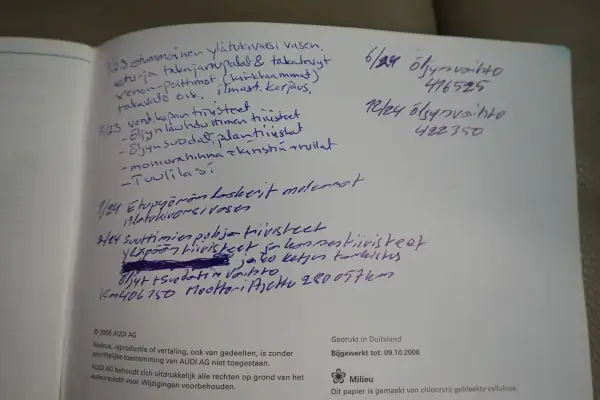 /23 etummainen ylätukivarsi vasen,
etu- ja takajarrupalat & takalevyt
xenon-polttimot (kirkkaammat)
takavalo oik. ilmast. korjaus,
/23 venttkopan tiivisteet
- öljynlauhduttimen tiivisteet
- öljynsuodatinjalan tiivisteet
- moniurahihna + kiristin + rullat
- Tuulilasi
1/24 Etupyörän laakerit molemmat
Ylätukivarsi vasen
3/24 Suuttimien pohja tiivisteet
yläpään tiivisteet ja kannentiivisteet
jako ketjun tarkistus
Öljyt + Suodatin vaihto
Km 406 750 Moottori Ajettu 280 057km
6/24 öljynvaihto
416525
12/24 öljynvaihto
422350
© 2006 AUDI AG
Nadruk, reproductie of vertaling, ook van gedeelten, is zonder
schriftelijke toestemming van AUDI AG niet toegestaan.
AUDI AG behoudt zich uitdrukkelijk alle rechten op grond van het
auteursrecht voor. Wijzigingen voorbehouden.
Gedrukt in Duitsland
Bijgewerkt tot: 09.10.2006
Milieu
Dit papier is gemaakt van chloorvrij gebleekte cellulose.